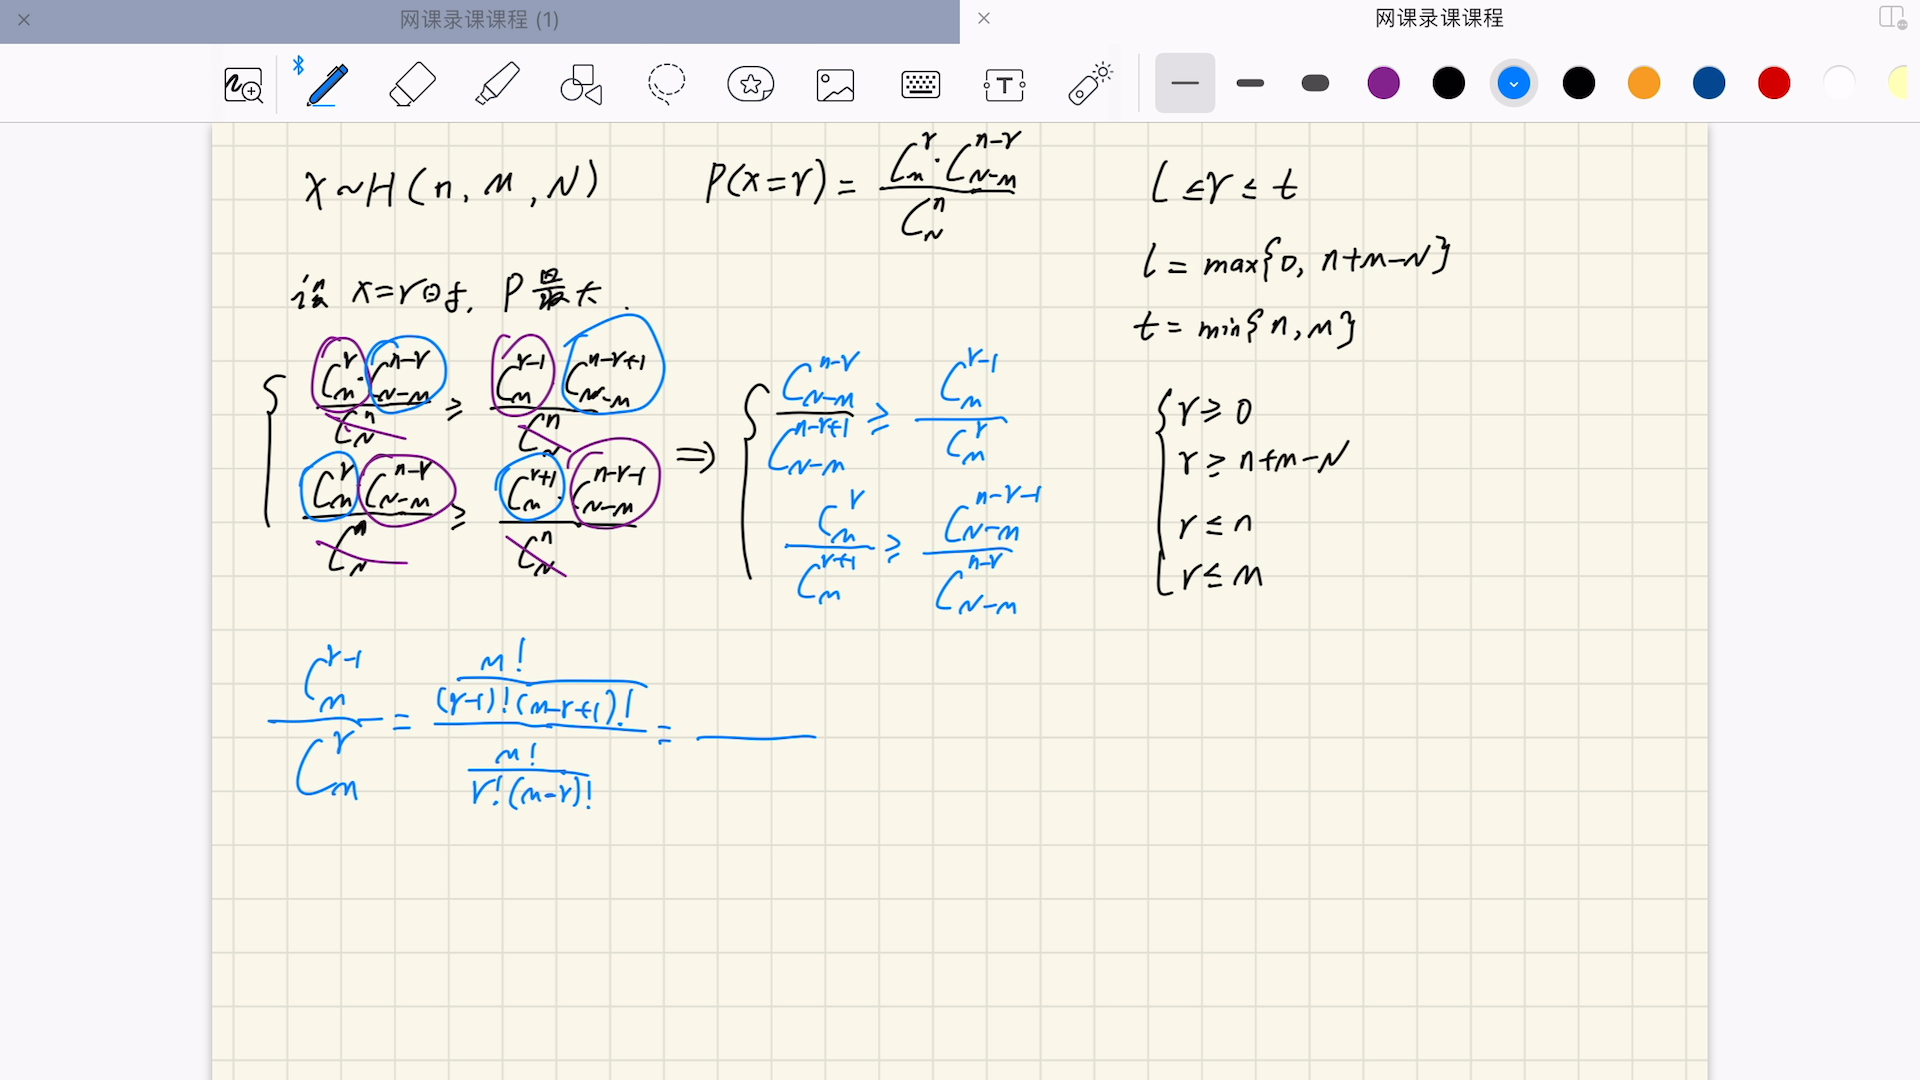 网课录课课程 (1)
网课录课课程
X~H(n, M, N) P(X=r) = \frac{C_M^r · C_{N-M}^{n-r}}{C_N^n}
设 X=r时, P最大.
\begin{cases} \frac{C_M^r · C_{N-M}^{n-r}}{C_N^n} ≥ \frac{C_M^{r-1} C_{N-M}^{n-r+1}}{C_N^n} \\ \frac{C_M^r C_{N-M}^{n-r}}{C_N^n} ≥ \frac{C_M^{r+1} · C_{N-M}^{n-r-1}}{C_N^n} \end{cases} ⇒ \begin{cases} \frac{C_{N-M}^{n-r}}{C_{N-M}^{n-r+1}} ≥ \frac{C_M^{r-1}}{C_M^r} \\ \frac{C_M^r}{C_M^{r+1}} ≥ \frac{C_{N-M}^{n-r-1}}{C_{N-M}^{n-r}} \end{cases}
\frac{C_M^{r-1}}{C_M^r} = \frac{\frac{M!}{(r-1)!(M-r+1)!}}{\frac{M!}{r!(M-r)!}} =
l ≤ r ≤ t
l = max{0, n+M-N}
t = min{n, M}
\begin{cases} r ≥ 0 \\ r ≥ n+M-N \\ r ≤ n \\ r ≤ M \end{cases}
T